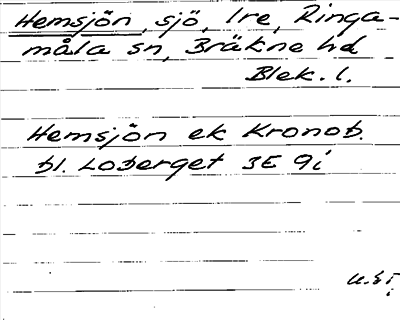 Hemsjön, sjö, Ire, Ringa-
måla sn, Bräkne hd
Blek. l.
Hemsjön ek Kronob.
bl. Loberget 3E 9i